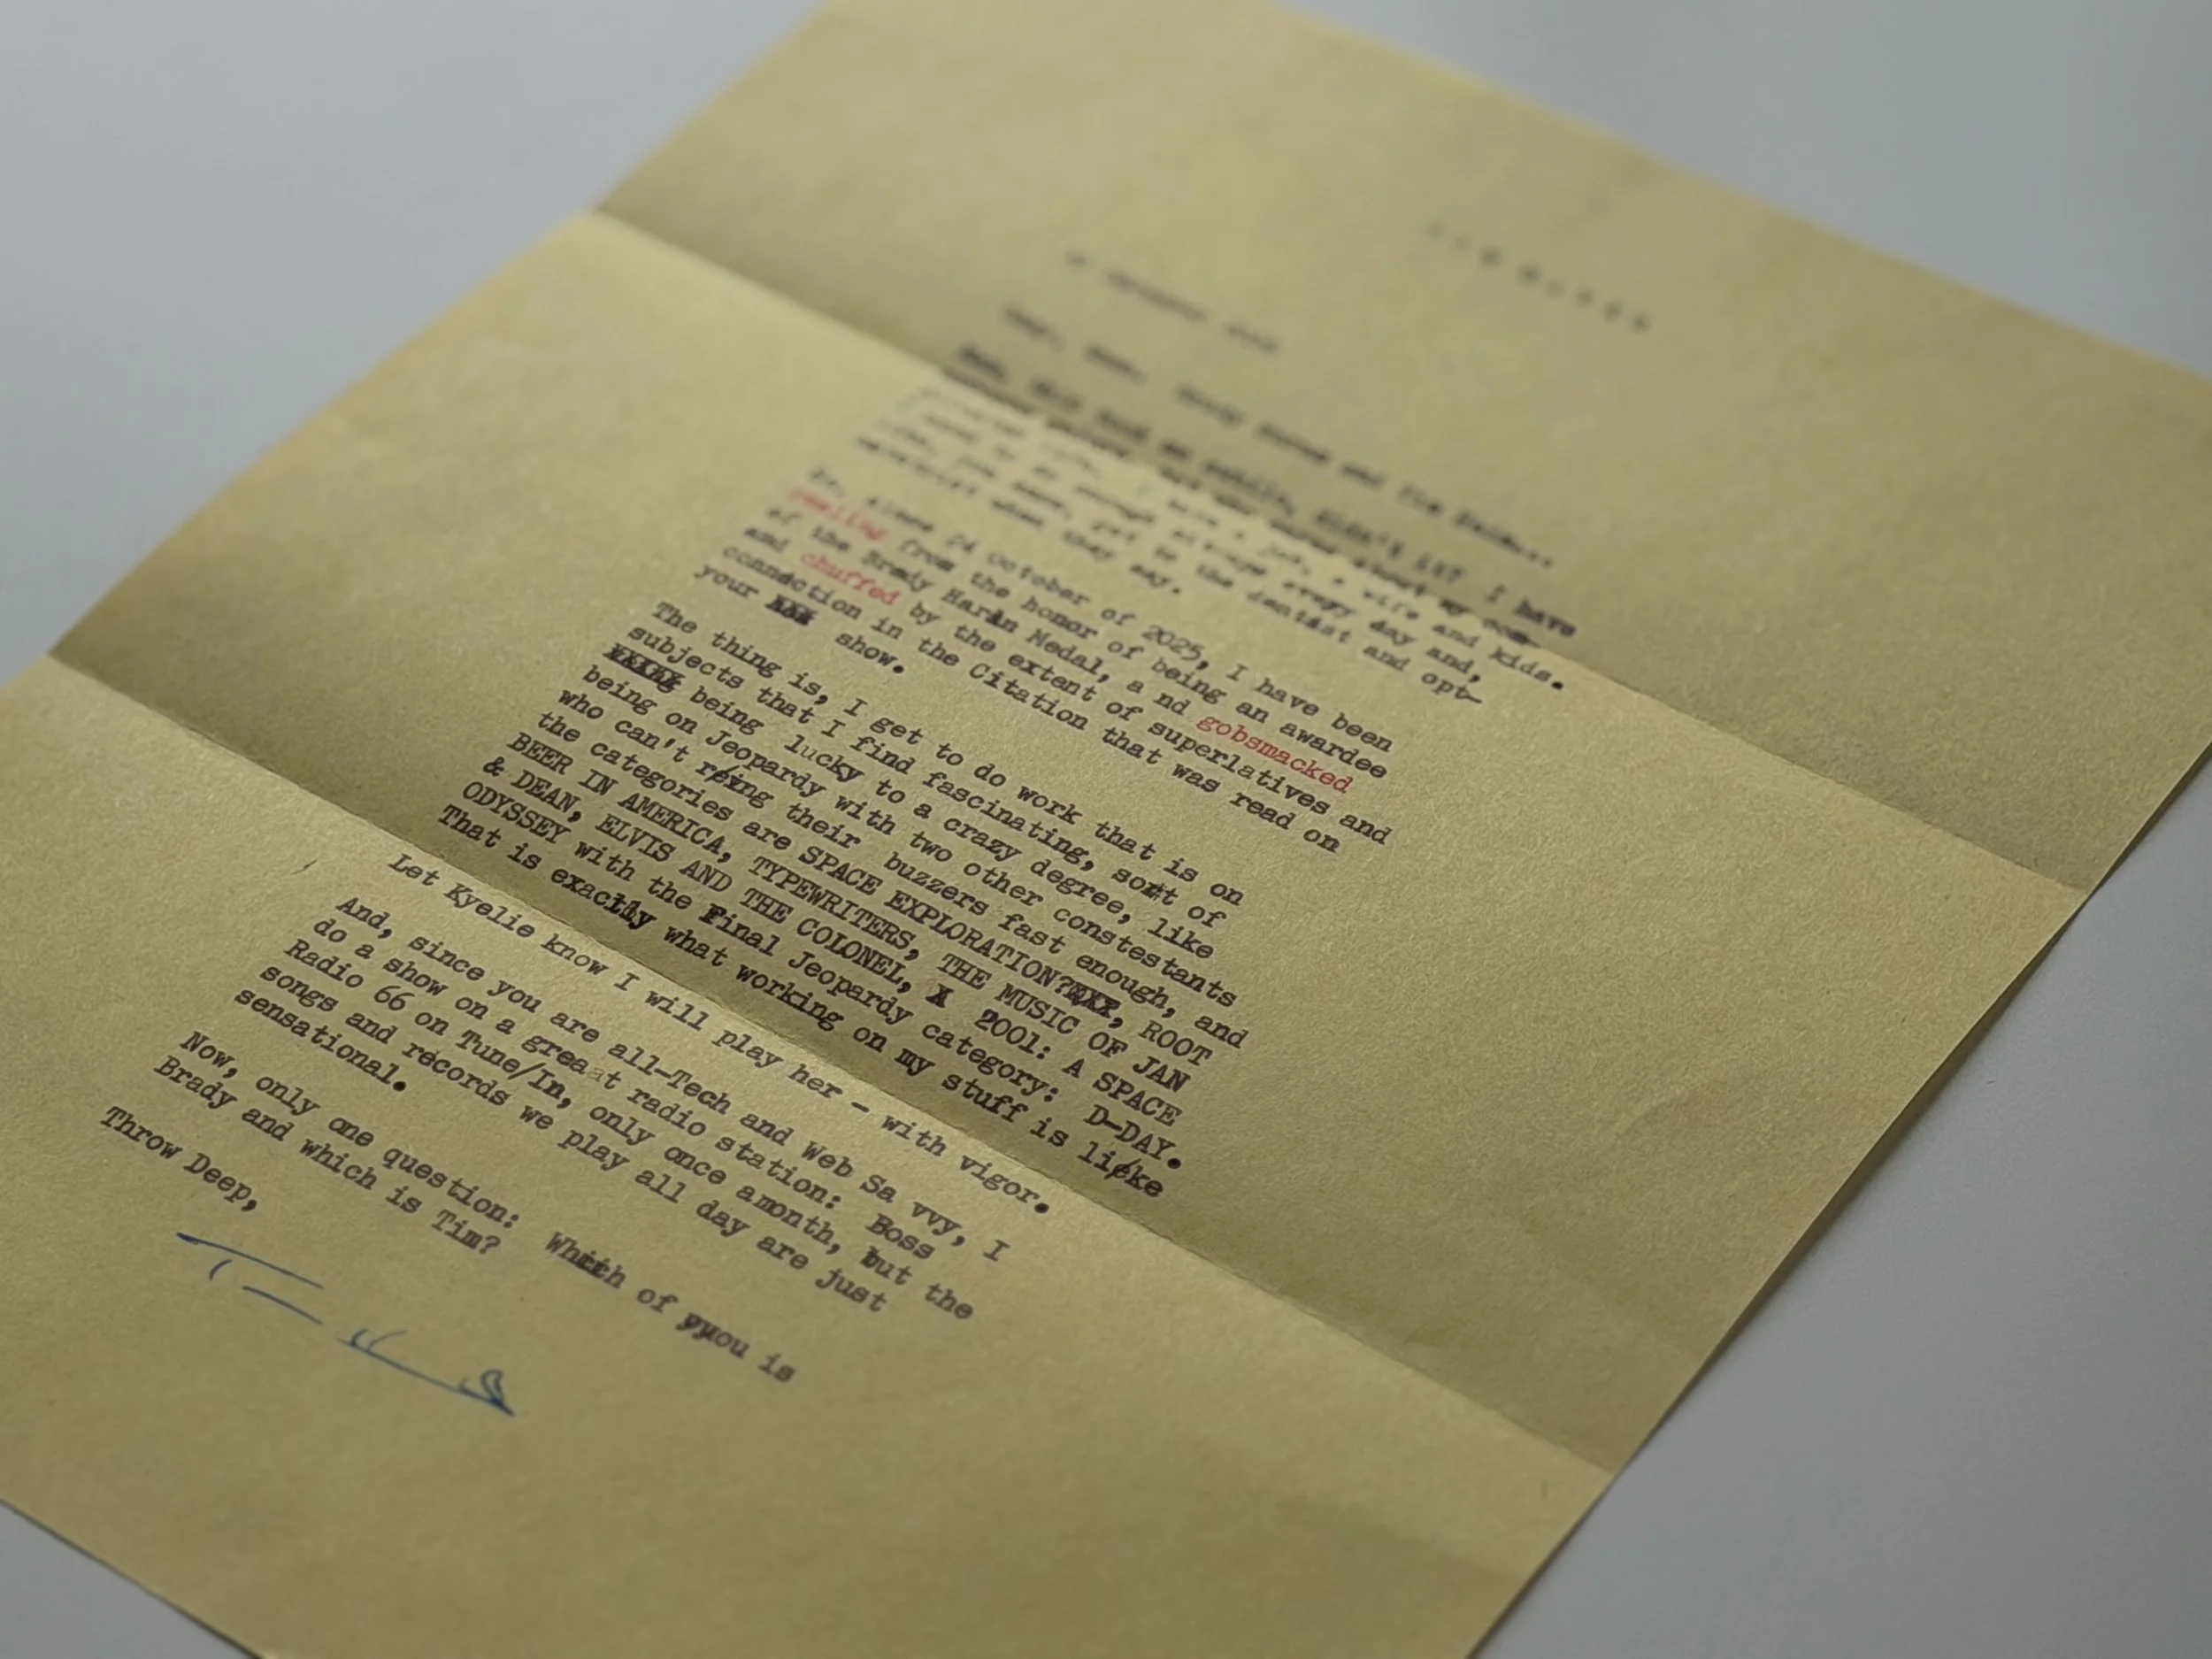 Dear, dear, Brady Haran and Tim Hein...
Boy, this took me awhile, didn't it? I have
a job, a wife and kids.
every day and,
like, you have, get to the dentist and opt-
ometrist when they say.
So, since 24 October of 2025, I have been
reeling from the honor of being an awardee
of the Brady Haran Medal, a nd gobsmacked
and chuffed by the extent of superlatives and
connection in the Citation that was read on
your show.
The thing is, I get to do work that is on
subjects that I find fascinating, sort of
being lucky to a crazy degree, like
being on Jeopardy with two other constestants
who can't ring their buzzers fast enough, and
the categories are SPACE EXPLORATION?, ROOT
BEER IN AMERICA, TYPEWRITERS, THE MUSIC OF JAN
& DEAN, ELVIS AND THE COLONEL, X 2001: A SPACE
ODYSSEY with the Final Jeopardy category: D-DAY.
That is exactly what working on my stuff is like
Let Kyelie know I will play her - with vigor.
And, since you are all-Tech and Web Sa vvy, I
do a show on a greaat radio station: Boss
Radio 66 on Tune/In, only once amonth, but the
songs and records we play all day are just
sensational.
Now, only one question: Which of yyou is
Brady and which is Tim?
Throw Deep,